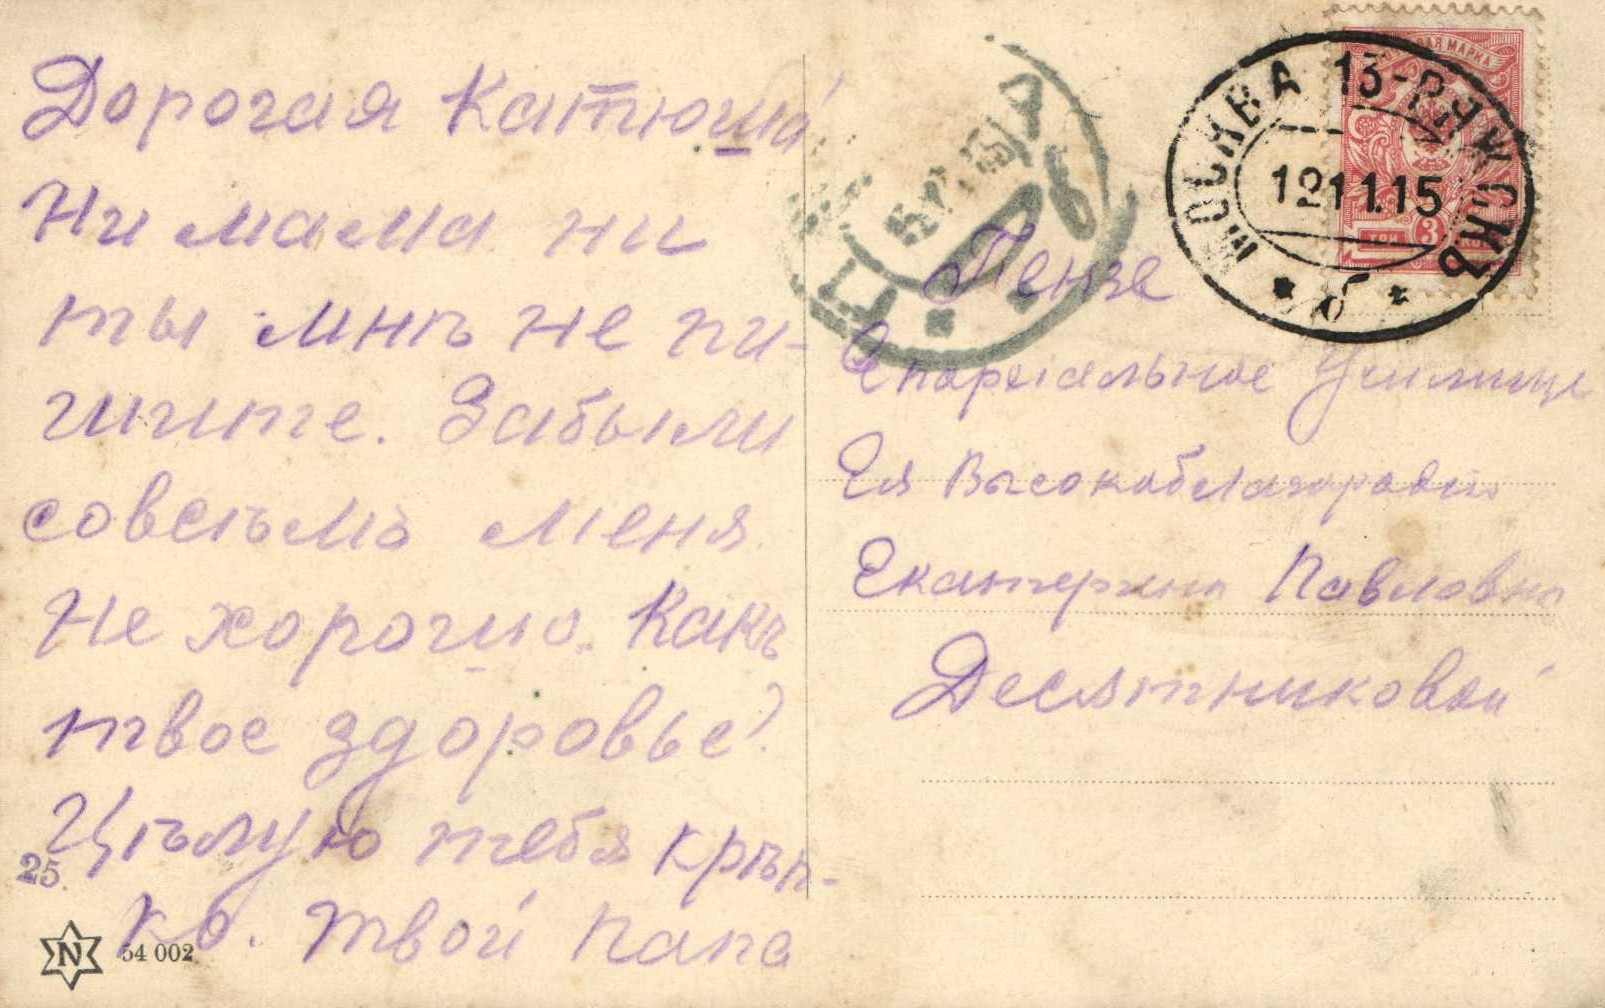 Дорогая Катюша
Ни мама ни
ты мнѣ не пи-
шите. Забыли
совсѣмъ меня
Не хорошо. Какъ
твое здоровье?
Цѣлую тебя крѣп-
ко. Твой папа
25.
N
54 002
МОСКВА 13-РЯЖСКЪ
12 11.15
* б *
ТРИ 3 КОП
Пензе
Епархіальное Училище
Ея Высокоблагородію
Екатеринѣ Павловнѣ
Десятниковой